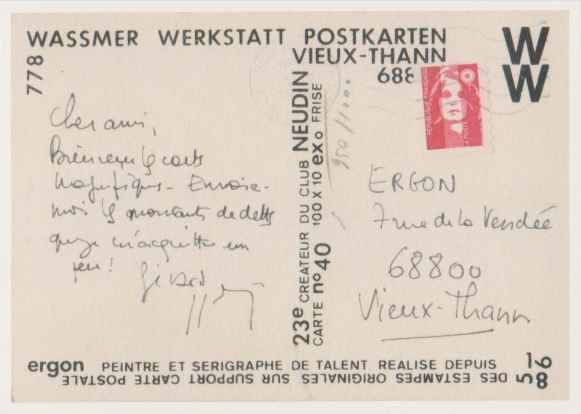 WASSMER WERKSTATT POSTKARTEN
VIEUX-THANN
688
778
WW
RÉPUBLIQUE FRANÇAISE
LA POSTE
Cher ami,
Bien reçu les cartes
magnifiques - Envoie-
moi le montant de dette
que je m'acquitte un
peu!
Gérard
23e CREATEUR DU CLUB NEUDIN
CARTE n° 40 100 x 10 exo FRISE
350/1000
ERGON
7 rue de la Vendée
68800
Vieux-Thann
ergon PEINTRE ET SERIGRAPHE DE TALENT REALISE DEPUIS
DES ESTAMPES ORIGINALES SUR SUPPORT CARTE POSTALE